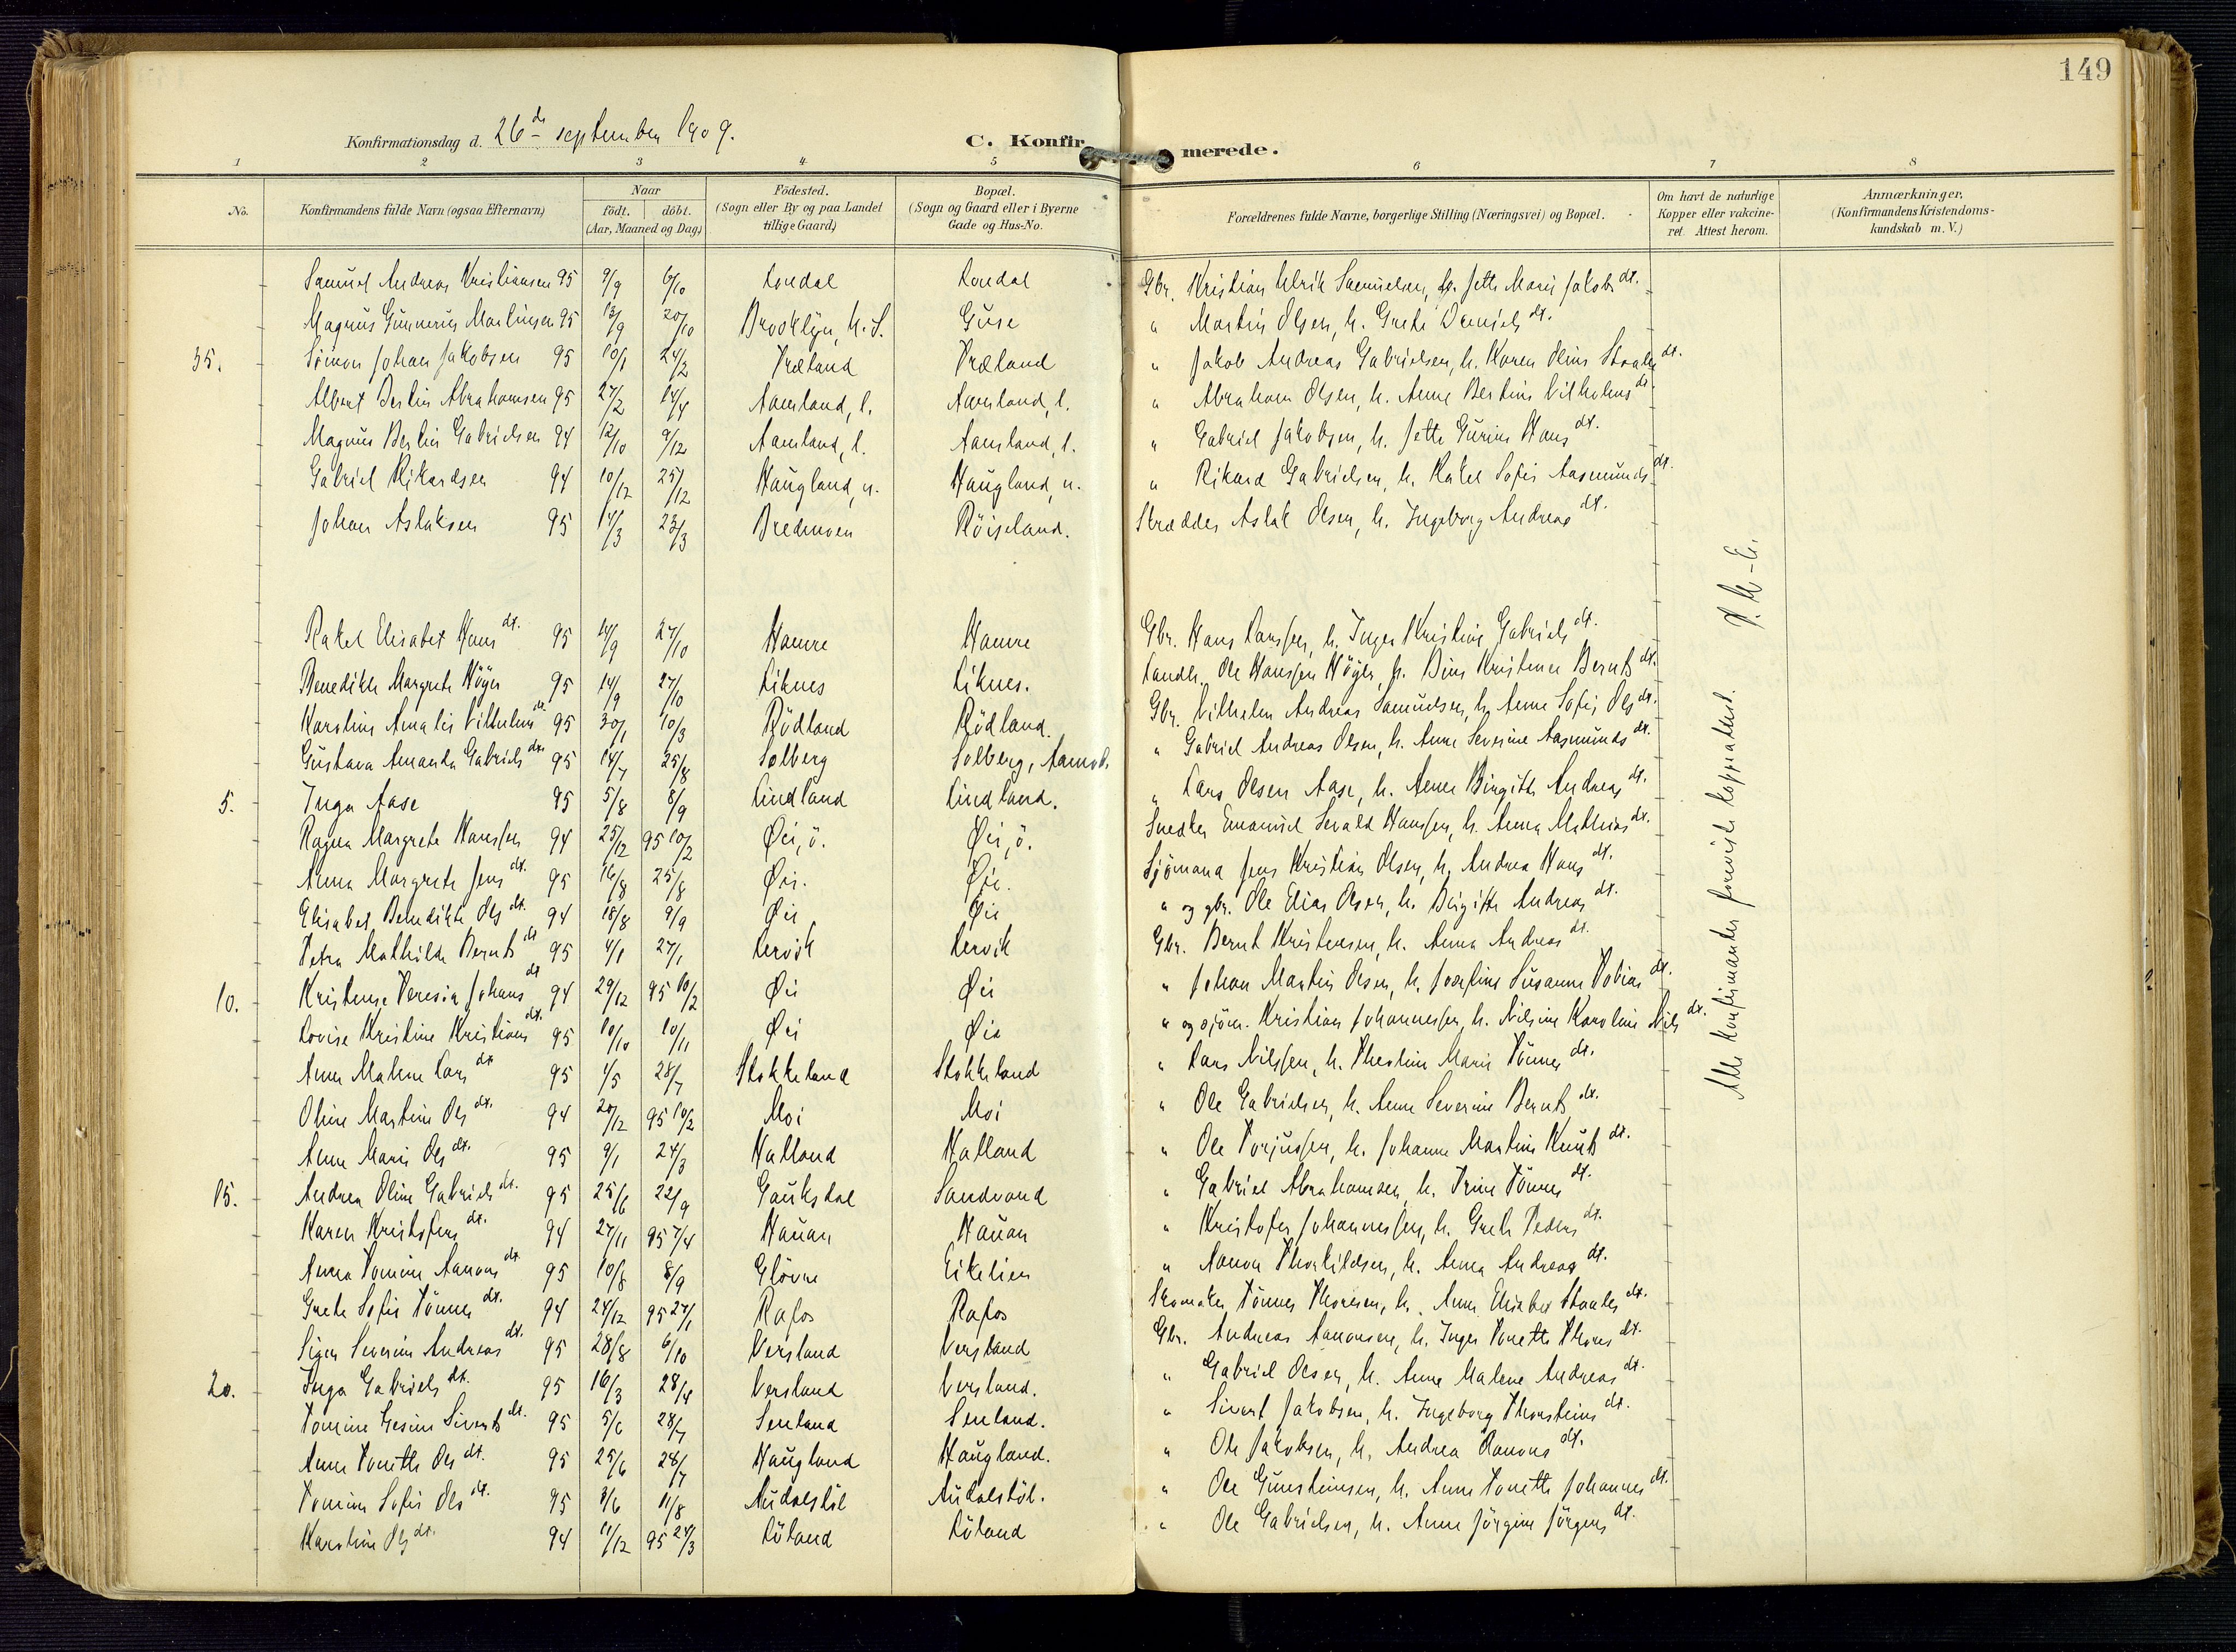 149
Konfirmationsdag d. 26de september 1909. C. Konfirmerede.
1 2 3 4 5 6 7 8
No. Konfirmandens fulde Navn (ogsaa Efternavn) Naar født. døbt. (Aar, Maaned og Dag) Fødested. (Sogn eller By og paa Landet tillige Gaard) Bopæl. (Sogn og Gaard eller i Byerne Gade og Hus-No. Forældrenes fulde Navne, borgerlige Stilling (Næringsvei) og Bopæl. Om havt de naturlige Kopper eller vakcineret. Attest herom. Anmærkninger. (Konfirmandens Kristendomskundskab m. V.)
Samuel Andreas Kristiansen 95 9/9 6/10 Londal Londal Gbr. Kristian Ulrik Samuelsen, h. Jette Marie Jakobsdt.
Magnus Gunnerius Martinsen 95 13/9 20/10 Brooklyn, U.S. Guse " Martin Olsen, h. Grete Danielsdt.
35. Simon Johan Jakobsen 95 10/1 24/2 Træland Træland " Jakob Andreas Gabrielsen, h. Karen Oline Staalesdt.
Albert Bertin Abrahamsen 95 27/2 14/4 Aamland, l. Aamland, l. " Abraham Olsen, h. Anne Bertine Vilhelmsdt.
Magnus Bertin Gabrielsen 94 12/10 9/12 Aamland, l. Aamland, l. " Gabriel Jakobsen, h. Jette Gurine Hansdt.
Gabriel Rikardsen 94 10/12 25/12 Haugland, n. Haugland, n. " Rikard Gabrielsen, h. Rakel Sofie Aasmundsdt.
Johan Aslaksen 95 14/3 23/3 Bredmoen Röiseland. Skrædder Aslak Olsen, h. Ingeborg Andreasdt.
Rakel Elisabet Hansdt. 95 14/9 27/10 Hamre Hamre Gbr. Hans Larssen, h. Inger Kristine Gabrielsdt.
Benedikte Margrete Höyer 95 14/9 27/10 Liknes Liknes. Landh. Ole Hanssen Höyer, h. Bine Kristence Berntsdt.
Karoline Amalie Vilhelmsdt. 95 30/1 10/3 Rödland Rödland. Gbr. Vilhelm Andreas Samuelsen, h. Anne Sofie Olsdt.
Gustava Amanda Gabrielsdt. 95 14/7 25/8 Solberg Solberg, Aamot. " Gabriel Andreas Olsen, h. Anne Severine Aasmundsdt.
5. Inga Aase 95 5/8 8/9 Lindland Lindland. " Lars Olsen Aase, h. Anne Birgitte Andreasdt.
Ragna Margrete Hanssen 94 25/12 95 10/2 Øie, ö. Øie, ö. Snedker Emanuel Sevald Hanssen, h. Anna Mathiasdt.
Anna Margrete Jensdt. 95 16/8 25/8 Øie. Øie. Sjömand Jens Kristian Olsen, h. Andrea Hansdt.
Elisabet Benedikte Olsdt. 94 18/8 9/9 Øie Øie " og gbr. Ole Elias Olsen, h. Birgitte Andreasdt.
Petra Mathilde Berntsdt 95 4/1 27/1 Lervik Lervik Gbr. Bernt Kristensen, h. Anna Andreasdt.
10. Kristense Teresia Johansdt 94 29/12 95 10/2 Øie Øie " Johan Martin Olsen, h. Josefine Susanne Tobiasdt.
Lovise Kristine Kristiansdt. 95 10/10 10/11 Øie Øie " og sjöm. Kristian Johannessen, h. Nilsine Karoline Nilsdt.
Anne Malene Larsdt. 95 4/5 28/7 Stokkeland Stokkeland " Lars Nilssen, h. Theoline Marie Tönnesdt.
Oline Martine Olsdt. 94 20/12 95 10/2 Moi Moi " Ole Gabrielsen, h. Anne Severine Berntsdt.
Anne Marie Olsdt. 95 9/1 24/3 Hatland Hatland " Ole Torjussen, h. Johanne Martine Knutsdt.
15. Andrea Oline Gabrielsdt. 95 25/6 22/9 Gauksdal Sandvand " Gabriel Abrahamsen, h. Trine Tönnesdt.
Karen Kristofersdt. 94 27/11 95 7/4 Hauan Hauan " Kristofer Johannessen, h. Grete Pedersdt.
Anna Tomine Aanonsdt. 95 10/8 8/9 Glövre Eikelien " Aanon Thorkildsen, h. Anna Andreasdt.
Grete Sofie Tönnesdt. 94 24/12 95 27/1 Rafos Rafos Skomaker Tönnes Thoresen, h. Anne Elisabet Staalesdt.
Siger Severine Andreasdt. 95 28/8 6/10 Versland Versland Gbr. Andreas Aanonsen, h. Inger Tonette Thorsdt.
20. Inga Gabrielsdt. 95 16/3 28/4 Versland Versland. " Gabriel Olsen, h. Anne Malene Andreasdt.
Tomine Gesine Sivertsdt. 95 5/6 28/7 Senland Senland. " Sivert Jakobsen, h. Ingeborg Thorsteinsdt.
Anne Tonette Olsdt. 95 25/6 28/7 Haugland Haugland. " Ole Jakobsen, h. Andrea Aanonsdt.
Tomine Sofie Olsdt. 95 8/6 11/8 Audalstöl Audalstöl. " Ole Gunsteinsen, h. Anne Tonette Johannesdt.
Karoline Olsdt. 94 11/12 95 24/3 Löland Löland " Ole Gabrielsen, h. Anne Jörgine Jörgensdt.
Alle konfirmanter foreviste koppeattest.